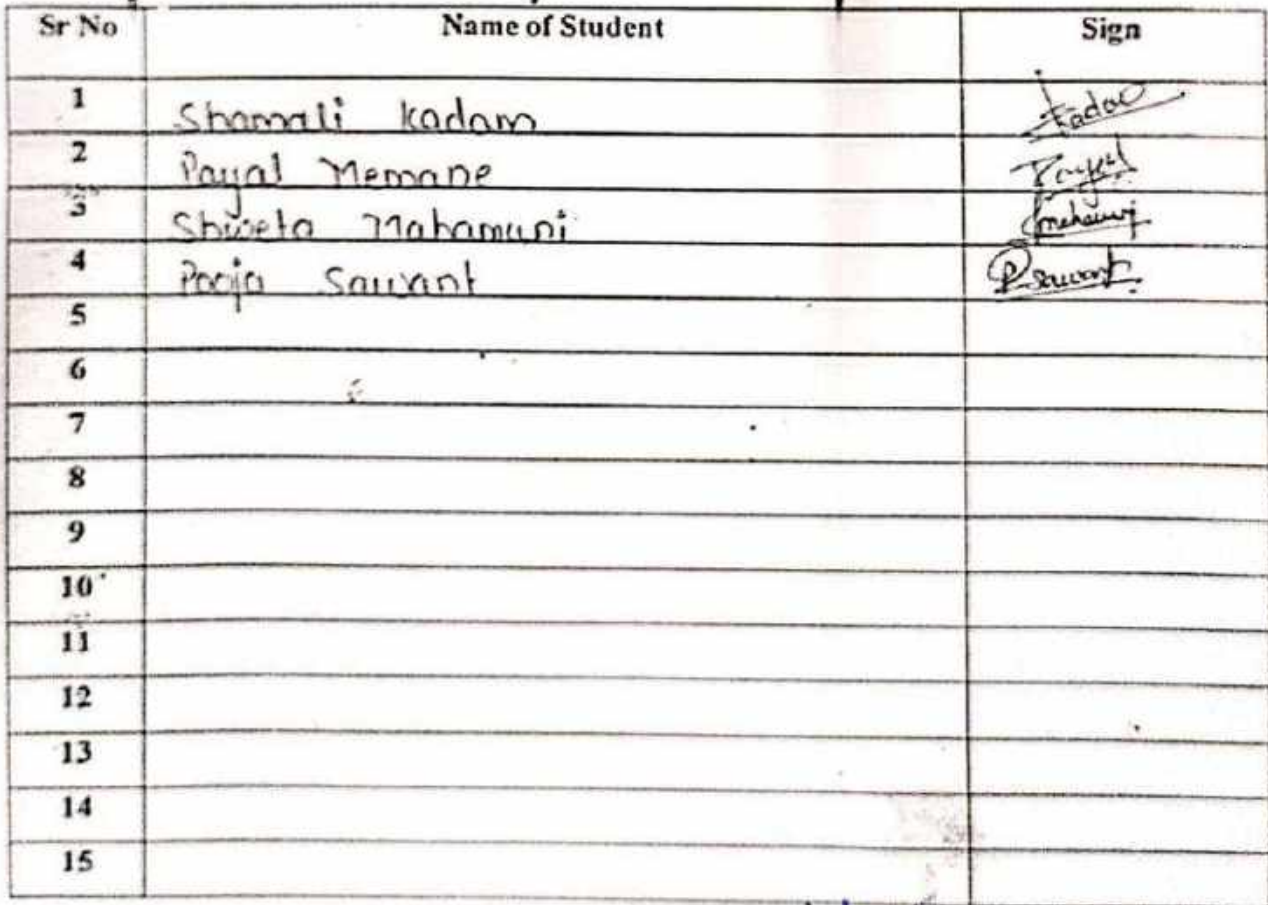 Sr No Name of Student Sign
1 Shamali Kadam Kadam
2 Payal Memane Payal
3 Shweta Mahamuni
4 Pooja Sawant P. Sawant
5
6
7
8
9
10
11
12
13
14
15